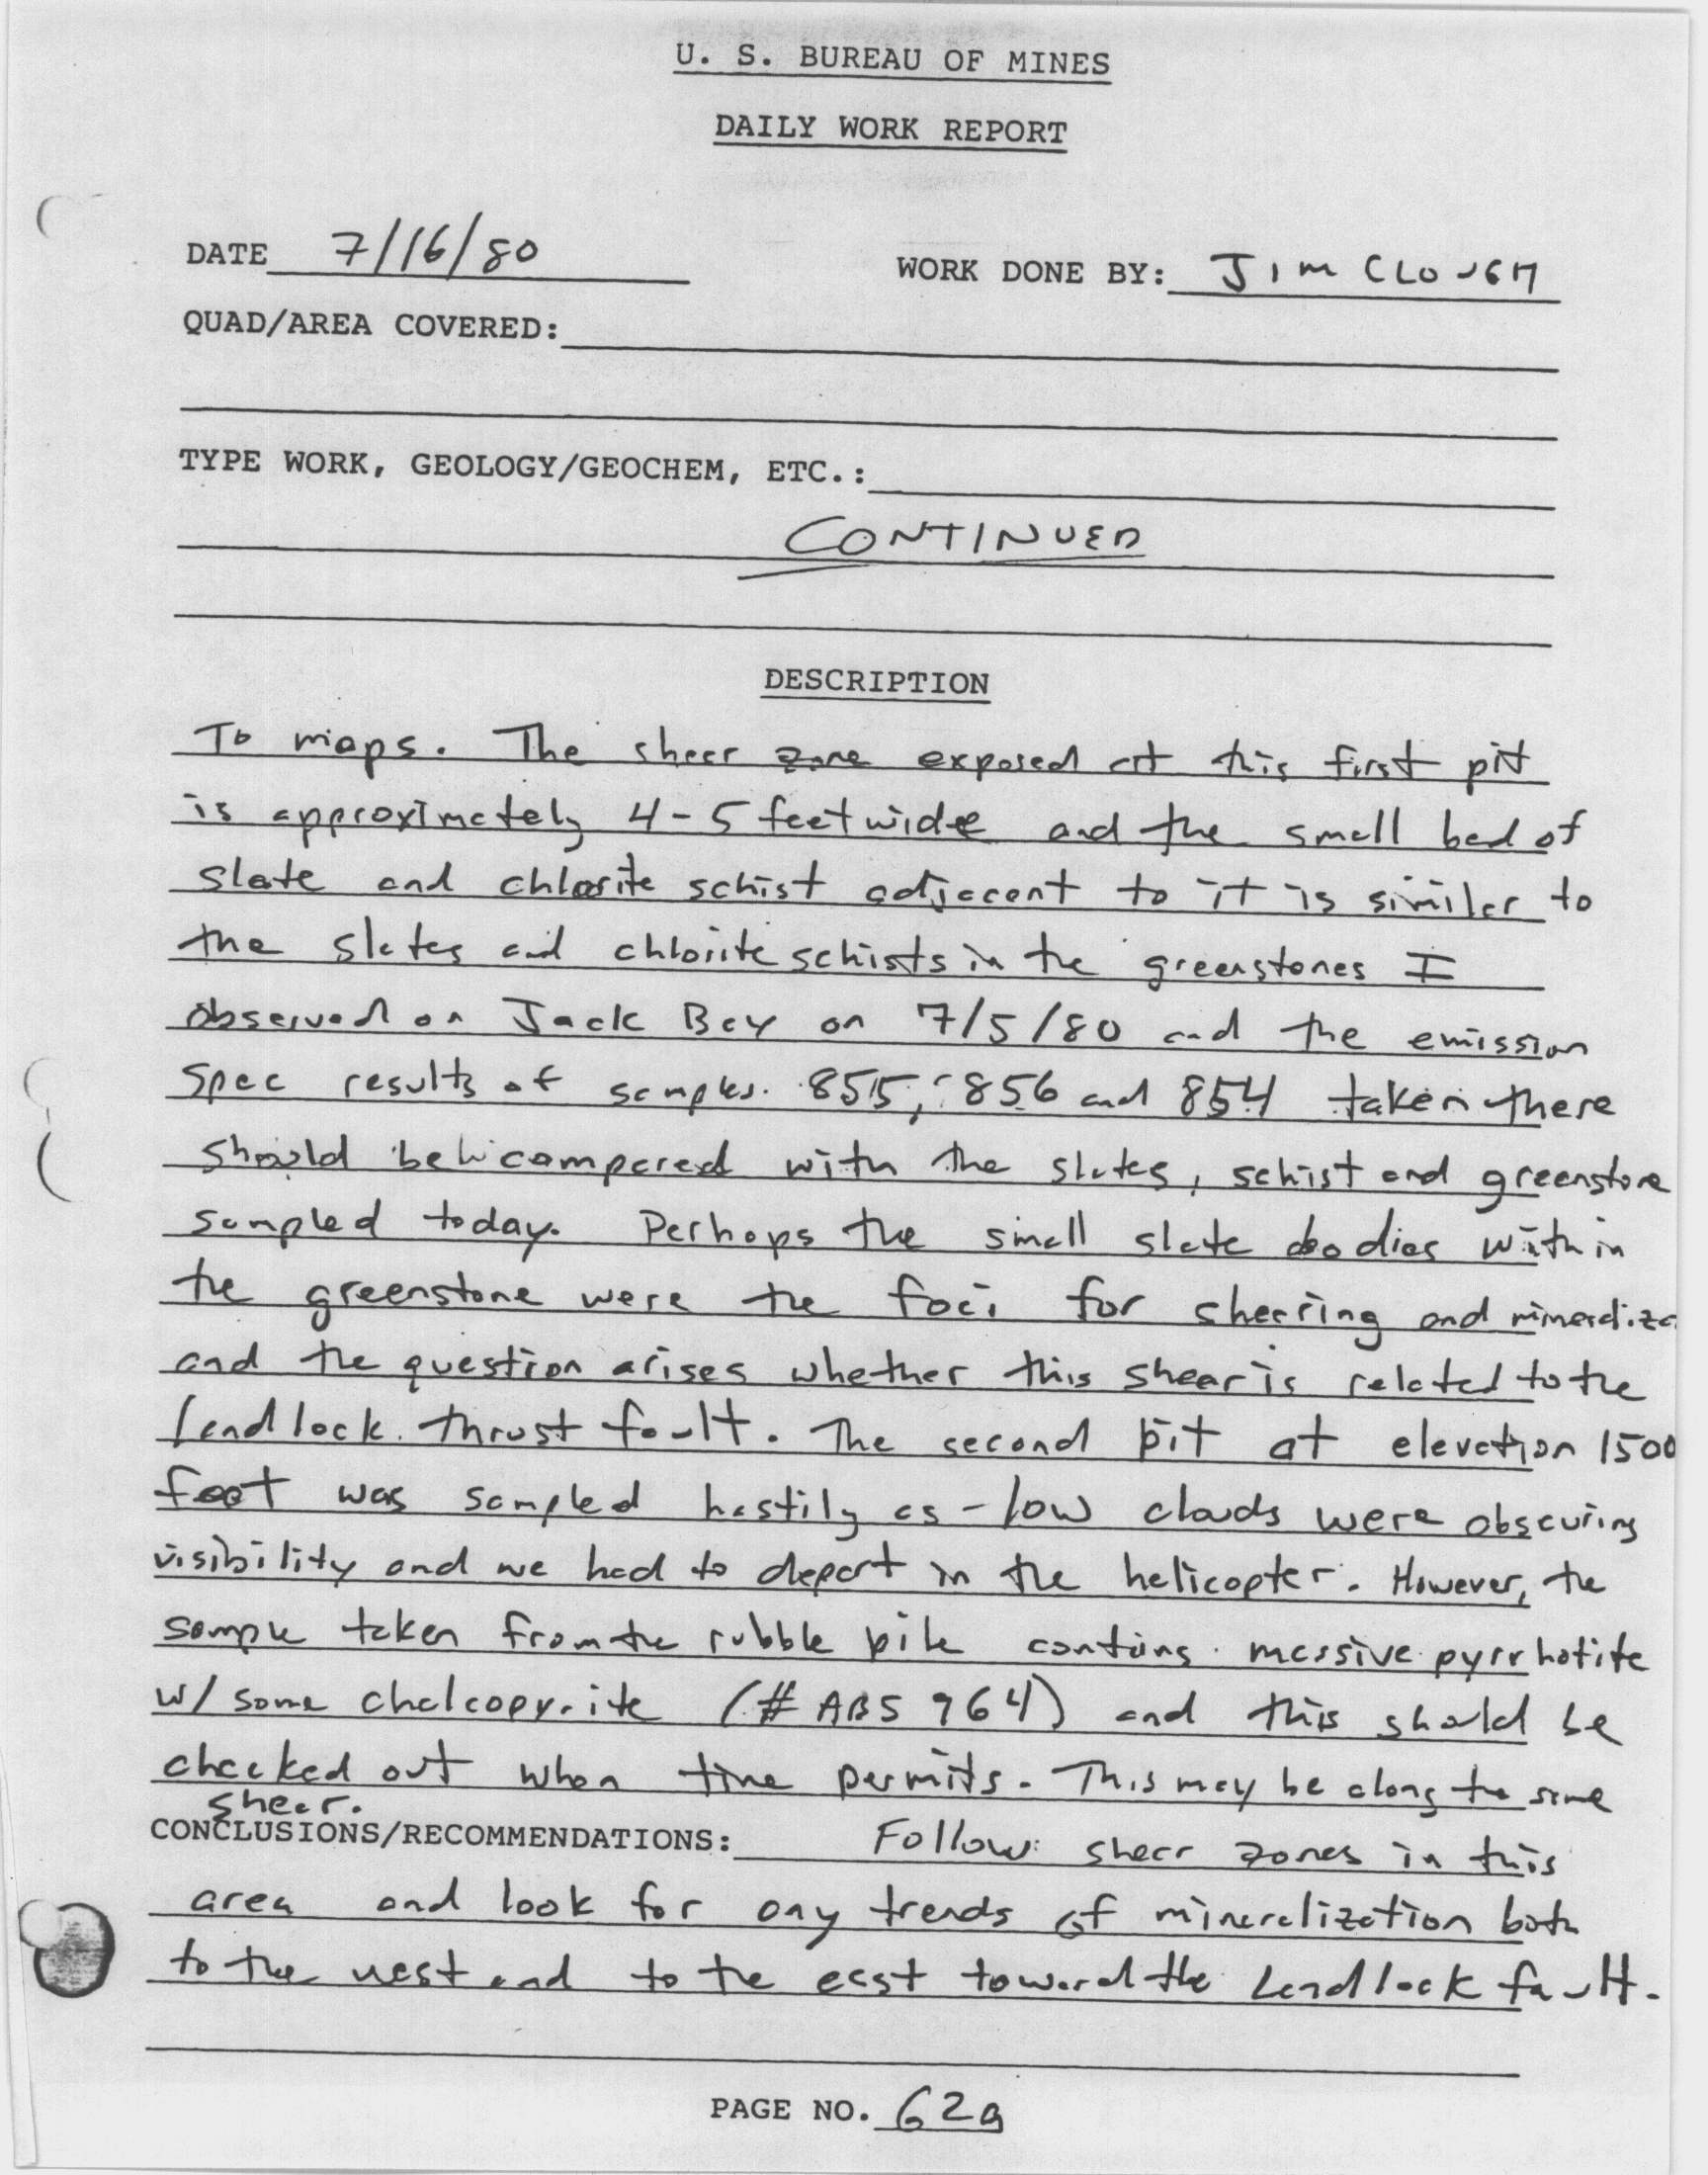 U. S. BUREAU OF MINES
DAILY WORK REPORT
DATE 7/16/80 WORK DONE BY: JIM CLOUGH
QUAD/AREA COVERED:
TYPE WORK, GEOLOGY/GEOCHEM, ETC.:
CONTINUED
DESCRIPTION
To maps. The shear zone exposed at this first pit
is approximately 4-5 feet wide and the small bed of
slate and chlorite schist adjacent to it is similar to
the slates and chlorite schists in the greenstones I
observed on Jack Bay on 7/5/80 and the emission
spec results of samples 855, 856 and 854 taken there
should be compared with the slates, schist and greenstone
sampled today. Perhaps the small slate bodies within
the greenstone were the foci for shearing and mineraliza
and the question arises whether this shear is related to the
Landlock thrust fault. The second pit at elevation 1500
feet was sampled hastily as low clouds were obscuring
visibility and we had to depart in the helicopter. However, the
sample taken from the rubble pile contains massive pyrrhotite
w/ some chalcopyrite (# ABS 964) and this should be
checked out when time permits. This may be along the same
shear.
CONCLUSIONS/RECOMMENDATIONS: Follow shear zones in this
area and look for any trends of mineralization both
to the west and to the east toward the Landlock fault.
PAGE NO. 62a